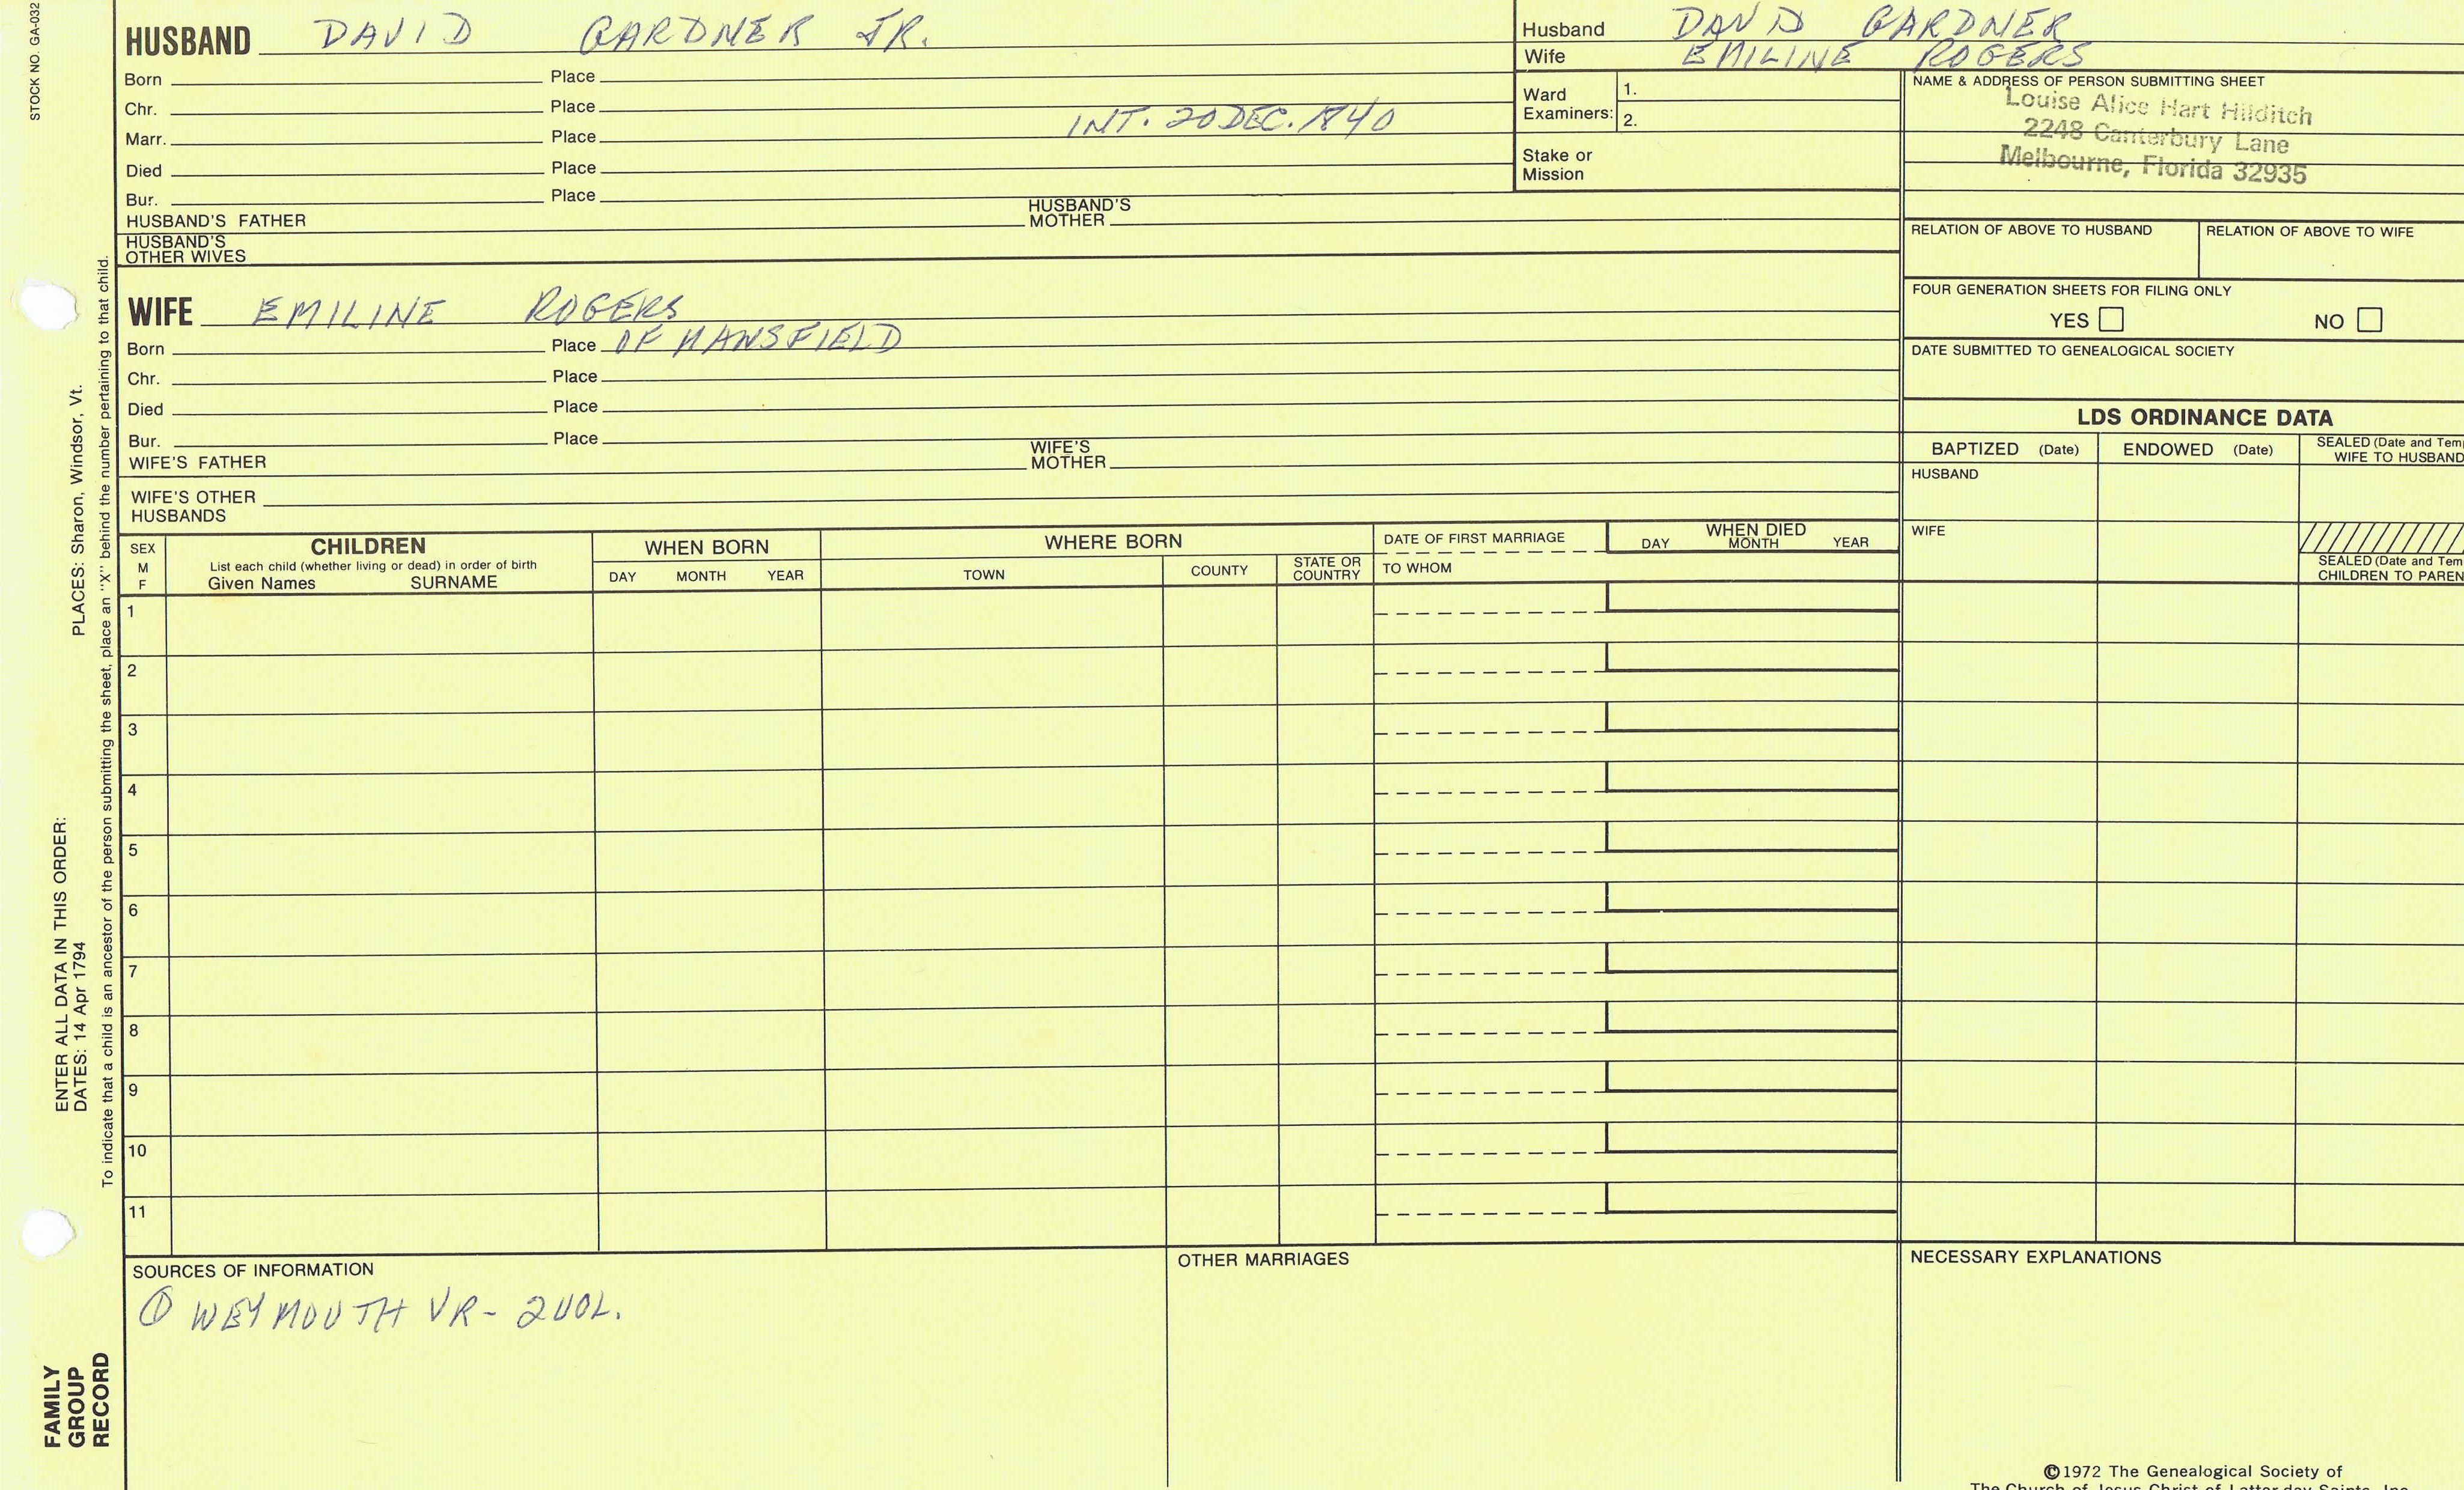 STOCK NO. GA-032
HUSBAND DAVID GARDNER JR.
Born Place
Chr. Place
Marr. Place INT. 20 DEC. 1840
Died Place
Bur. Place
HUSBAND'S FATHER HUSBAND'S MOTHER
HUSBAND'S
OTHER WIVES
Husband DAVID GARDNER
Wife EMILINE ROGERS
Ward
Examiners: 1.
2.
Stake or
Mission
NAME & ADDRESS OF PERSON SUBMITTING SHEET
Louise Alice Hart Hilditch
2248 Canterbury Lane
Melbourne, Florida 32935
RELATION OF ABOVE TO HUSBAND RELATION OF ABOVE TO WIFE
FOUR GENERATION SHEETS FOR FILING ONLY
YES NO
DATE SUBMITTED TO GENEALOGICAL SOCIETY
WIFE EMILINE ROGERS
Born Place OF MANSFIELD
Chr. Place
Died Place
Bur. Place
WIFE'S FATHER WIFE'S MOTHER
WIFE'S OTHER
HUSBANDS
LDS ORDINANCE DATA
BAPTIZED (Date) ENDOWED (Date) SEALED (Date and Tem
WIFE TO HUSBAND
HUSBAND
WIFE
SEALED (Date and Tem
CHILDREN TO PAREN
SEX
M
F
CHILDREN
List each child (whether living or dead) in order of birth
Given Names SURNAME
WHEN BORN
DAY MONTH YEAR
WHERE BORN
TOWN COUNTY STATE OR
COUNTRY
DATE OF FIRST MARRIAGE
TO WHOM
WHEN DIED
DAY MONTH YEAR
1
2
3
4
5
6
7
8
9
10
11
SOURCES OF INFORMATION
① WEYMOUTH VR - 2 VOL.
OTHER MARRIAGES
NECESSARY EXPLANATIONS
©1972 The Genealogical Society of
The Church of Jesus Christ of Latter-day Saints, Inc.
PLACES: Sharon, Windsor, Vt.
ENTER ALL DATA IN THIS ORDER:
DATES: 14 Apr 1794
To indicate that a child is an ancestor of the person submitting the sheet, place an "X" behind the number pertaining to that child.
FAMILY
GROUP
RECORD